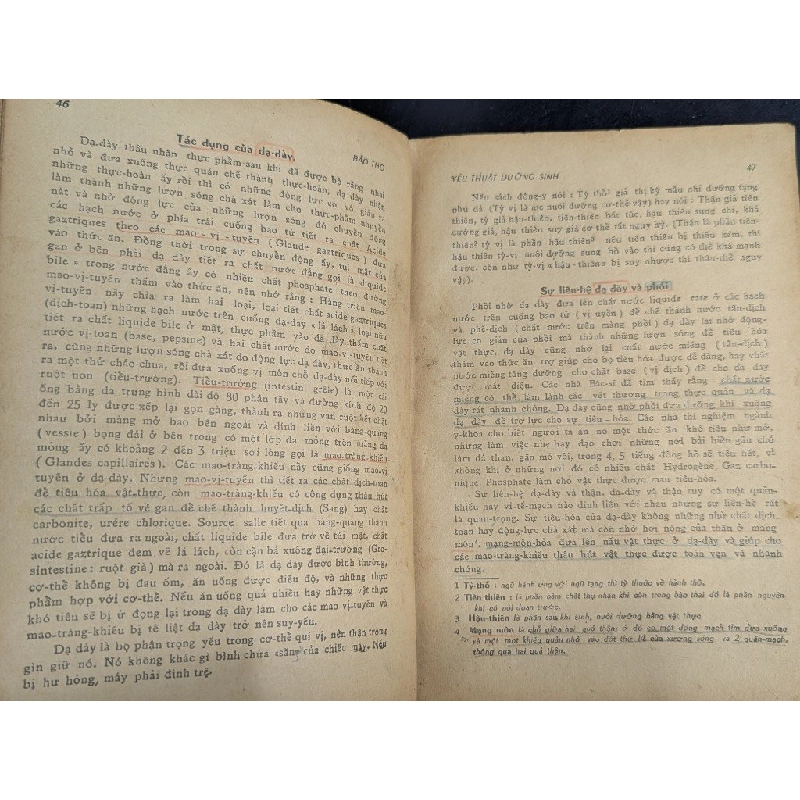 46
BẢO
Tác dụng của dạ-dày.
Dạ-dày thâu nhận thực phẩm sau khi đã được bộ răng nhai
nhỏ và đưa xuống thực quản chế thành thực-hoàn, dạ dày nhận
những thực-hoàn ấy rồi thì có những động lực co và giãn ra
làm thành những lượn sóng chà xát làm cho thực-phẩm nhuyễn
nát và nhờ động lực của những lượn sóng đó chuyển động
các hạch nước ở phía trái cuống bao tử tiết ra chất Acide
gastriques theo các mao-vị-tuyến (Glande gastriques) đưa
vào thức ăn. Đồng thời trong sự chuyển động ấy, túi mật của
gan ở bên phải dạ dày tiết ra chất nước đắng gọi là (liquide
bile: trong nước đắng ấy có nhiều chất phosphate theo đường
mao-vị-tuyến thấm vào thức ăn, nên nhớ rằng: Hàng triệu mao-
vị-tuyến này chia ra làm hai loại, loại tiết chất acide gastriques
(dịch-toan) những hạch nước trên cuống dạ-dày lá lách; loại nữa
tiết ra chất liquide bile ở mật, thực phẩm vào để thấm chất
nước vị-toan (base, pepsine) và hai chất nước do mao-vị-tuyến tiết
ra, cùng những lượn sóng chà xát do động lực dạ dày, thức ăn thành
ra một thứ cháo chua, rồi đưa xuống vị môn chỗ dạ-dày nối tiếp với
ruột non (tiểu-trường). Tiểu-trường (intestin grêle) là một cái
ống bằng da trung bình dài độ 80 phân tây và đường kính độ 20
đến 25 ly được xếp lại gọn gàng, thành ra những vòng ruột kết chặt
nhau bởi màng mỡ bao bên ngoài và dính liền với bàng-quang
(vessie) bọng đái ở bên trong có một lớp da mỏng trên màng da
mỏng ấy có khoảng 2 đến 3 triệu sợi lông gọi là mao-tràng-khiếu
(Glandes capillaires). Các mao-tràng-khiếu này cũng giống mao-vị-
tuyến ở dạ-dày. Nhưng mao-vị-tuyến thì tiết ra các chất dịch-toan
để tiêu hóa vật-thực, còn mao-tràng-khiếu có công dụng thâu hút
các chất trấp tố về gan để chế thành huyết-dịch (Sang) hay chất
carbonite, urére chlorique. Source salle tiết qua bàng-quang thành
nước tiểu đưa ra ngoài, chất liquide bile đưa trở về túi mật, chất
acide gaztrique đem về lá lách, còn cặn bã xuống đại-trường (Gros-
sintestine: ruột già) mà ra ngoài. Đó là dạ dày được bình thường,
cơ-thể không bị đau ốm, ăn uống được điều độ, và những thực
phẩm hợp với cơ-thể. Nếu ăn uống quá nhiều hay những vật thực
khó tiêu sẽ bị ứ đọng lại trong dạ dày làm cho các mao vị-tuyến và
mao-tràng-khiếu bị tê liệt dạ dày trở nên suy-yếu.
Dạ dày là bộ phận trọng yếu trong cơ-thể quí vị, nên thận trọng
gìn giữ nó. Nó không khác gì bình chứa xăng của chiếc máy. Nếu
bị hư hỏng, máy phải đình trệ.
YẾU THUẬT DƯỠNG SINH
47
Nên sách đông-y nói: Tỳ thổ¹ giả thị kỳ mẫu nhi dưỡng tụng
phủ dã (Tỳ vị là sức nuôi dưỡng cơ-thể vậy) hay nói: Thận giả tiên
thiên, tỳ giả hậu-thiên, tiên-thiên bất túc, hậu thiên sung chi, khả
cường giả, hậu thiên suy giả cơ thể rất nguy ấy. (Thận là phần tiên-
thiên² tỳ vị là phần hậu thiên³ nếu tiên thiên bị thiếu kém, thì
hậu thiên tỳ-vị nuôi dưỡng sung bổ vào thì cũng có thể khá mạnh
được, còn như tỳ-vị (hậu-thiên) bị suy nhược thì thân-thể nguy
vậy).
Sự liên-hệ dạ dày và phổi
Phổi nhờ dạ dày đưa lên chất nước liquide rate ở các hạch
nước trên cuống bao tử (vị tuyến) để chế thành nước tân-dịch
và phế-dịch (chất nước trên màng phổi) dạ dày lại nhờ động-
lực co giãn của phổi mà thành những lượn sóng để tiêu hóa
vật thực, dạ dày cũng nhờ lại chất nước miếng (tân-dịch)
thấm vào thức ăn trợ giúp cho bộ tiêu hóa được dễ dàng, hay chất
nước miếng tăng dưỡng cho chất base (vị dịch) để cho dạ dày
được mát diệu. Các nhà Bác-sĩ đã tìm thấy rằng chất nước
miếng có thể làm lành các vết thương trong thực quản và dạ
dày rất nhanh chóng. Dạ dày cũng nhờ phổi đưa dưỡng khí xuống
dạ dày để trợ lực cho sự tiêu-hóa. Các nhà thí nghiệm ngành
y-khoa cho biết người ta ăn no một thức ăn khó tiêu như mỡ,
nhưng làm việc này hay dạo chơi những nơi bãi biển gần chỗ
làm đá than, gần mỏ vôi, trong 4, 5 tiếng đồng hồ sẽ tiêu hết, vì
không khí ở những nơi đó có nhiều chất Hydrogène, Gaz carbo-
nique Phosphate làm cho vật thực được mau tiêu-hóa.
Sự liên-hệ dạ-dày và thận, dạ-dày và thận tuy có một quản-
khiếu hay vi-tế-mạch nào dính liền với nhau nhưng sự liên-hệ rất
là quan-trọng. Sự tiêu-hóa của dạ-dày không những nhờ chất dịch-
toan hay động-lực chà xát mà còn nhờ hơi nóng của thận ở mạng
môn⁴, mạng-môn-hỏa đưa lên nấu vật thực ở dạ-dày và giúp cho
các mao-tràng-khiếu thấu hút vật thực được toàn vẹn và nhanh
chóng.
1 Tỳ-thổ: ngũ hành ứng với ngũ tạng thì tỳ thuộc về hành thổ.
2 Tiên thiên: là phần bẩm chất thụ nhận khi còn trong bào thai đó là phần nguyên
khí có nơi quan trước.
3 Hậu-thiên là phần sau khi sinh, nuôi dưỡng bằng vật thực.
4 Mạng môn là chỗ giữa hai quả thận; ở đó có một động mạch lớn đưa xuống
và một mạt khiếu quản nhỏ nơi đốt thứ 14 của xương sống ra 2 quản-mạch,
thông qua hai quả thận.